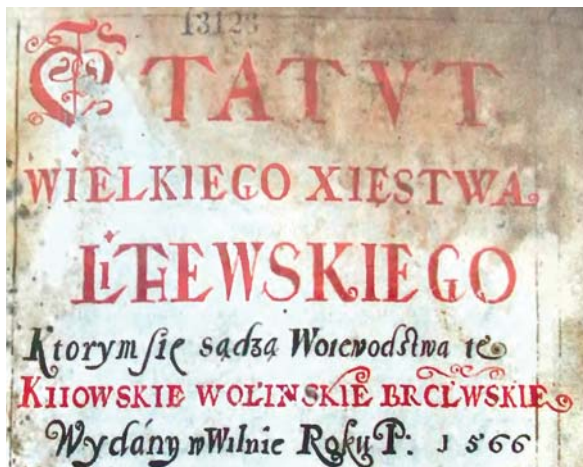 13123
STATVT
WIELKIEGO XIĘSTWA
LITEWSKIEGO
Ktorym się sądzą Woiewodstwa te
KIIOWSKIE WOLINSKIE BRCLWSKIE
Wydány w Wilnie Roku P: 1566